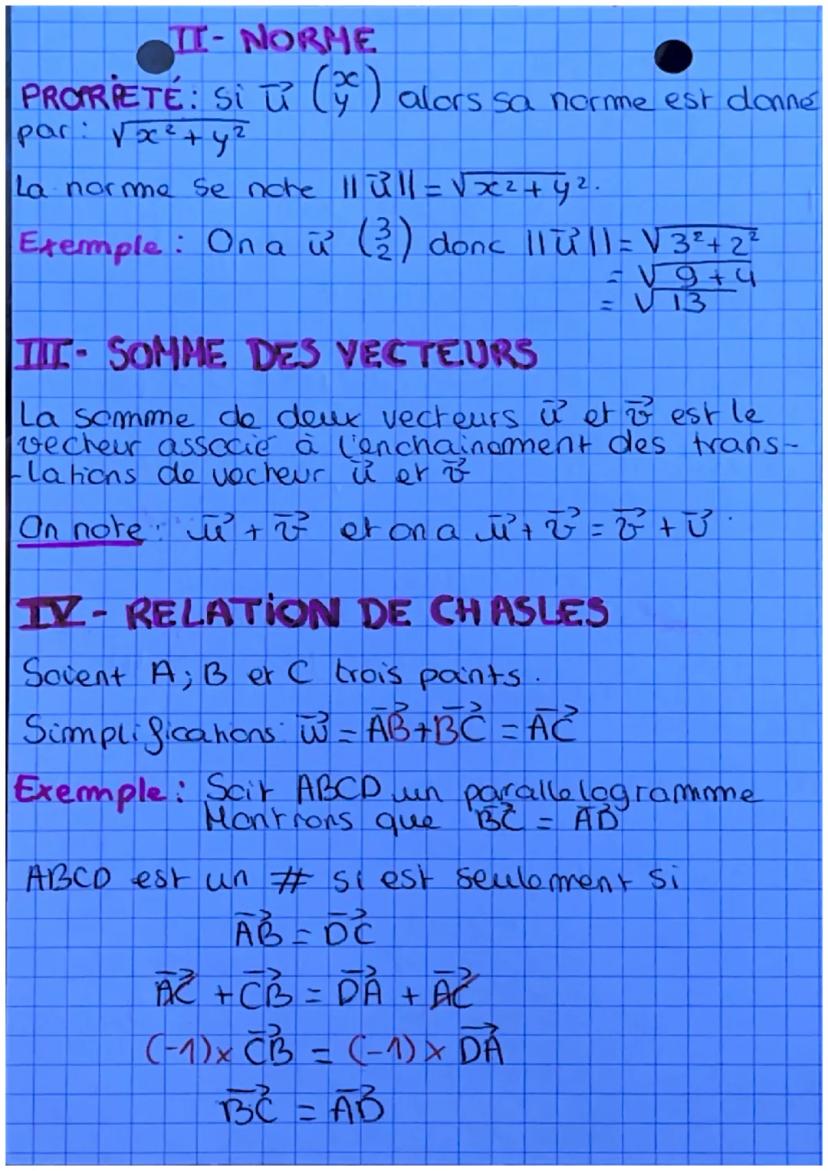 II- NORME
PROPRIETÉ: Si u⃗ (x y) alors sa norme est donné
par: √x²+y²
La norme se note ||u⃗||=√x²+y².
Exemple: On a u⃗ (3 2) donc ||u⃗||=√3²+2²
=√9+4
=√13
III- SOMME DES VECTEURS
La somme de deux vecteurs u⃗ et v⃗ est le
vecteur associé à l'enchainement des trans-
-lations de vecteur u⃗ et v⃗
On note: u⃗ + v⃗ et on a u⃗ + v⃗ = v⃗ + u⃗.
IV- RELATION DE CHASLES
Soient A; B et C trois points.
Simplifications: w⃗ = AB⃗+BC⃗ = AC⃗
Exemple: Soit ABCD un parallelogramme
Montrons que BC⃗ = AD⃗
ABCD est un # si est seulement si
AB⃗ = DC⃗
AC⃗ + CB⃗ = DA⃗ + AC⃗
(-1)× CB⃗ = (-1)× DA⃗
BC⃗ = AD⃗